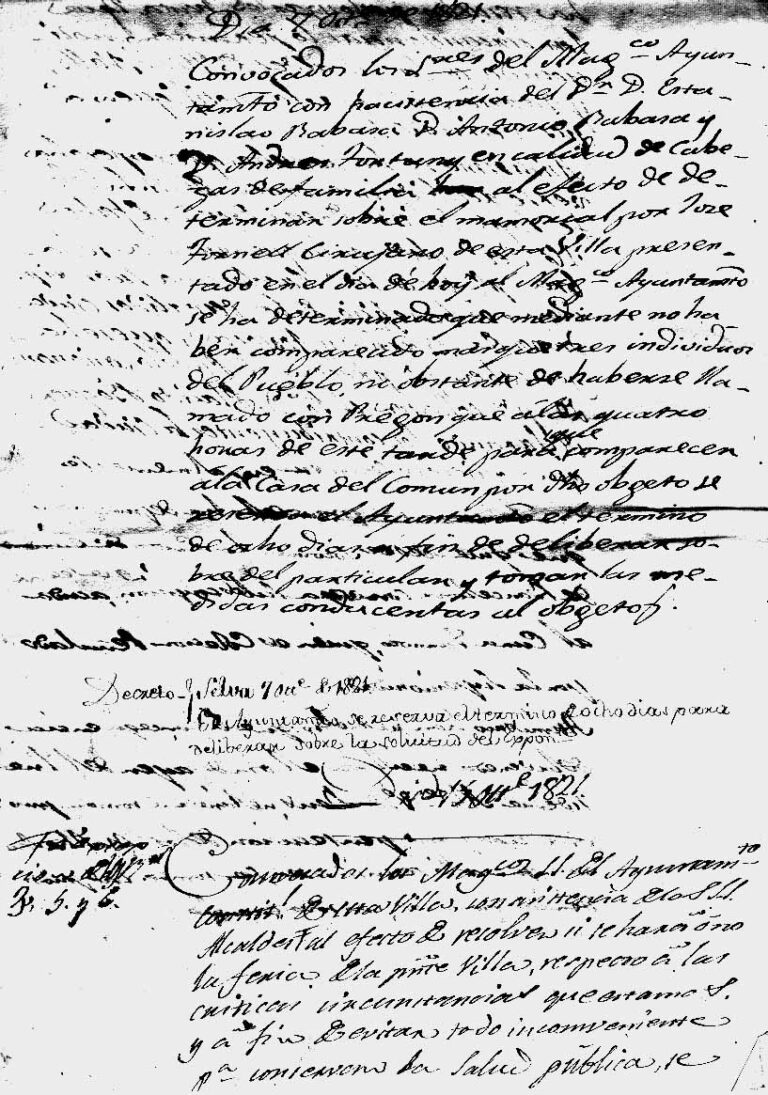 Dia 7 Oct.e de 1821
Convocados los S.res del Mag.co Ayun-
tam.to con pacistencia del D.n D. Esta-
nislao Babara D. Antonio Babara y
D. Andres Fortuny en calidad de Cabe-
zas de familia al efecto de de-
terminar sobre el memorial por Jose
Fornell Cirujano de esta Villa presen-
tado en el dia de hoy al Mag.co Ayuntam.to
se ha determinado que mediante no ha
ber comparecido mas que tres individuos
del Pueblo, ni obstante de haberse lla-
mado con Pregon que á las quatro
horas de este tarde para comparecer
á la Casa del Comun por dho obgeto se
reserva el Ayuntam.to el termino
de ocho dias a fin de deliberar so-
bre del particular y tomar las me-
didas conducentas al obgeto.
Decreto Selva 7 Oc.e de 1821
El Ayuntam.to se reserva el termino de ocho dias para
deliberar sobre la solicitud del Expon.te
1821.
3. 5. y 6.
Convocados los Mag.cos SS. del Ayuntam.to
de esta Villa, con asistencia de los SS.
Alcaldes al efecto de resolver si se hará ó no
la feria de la pnte Villa, respecto á las
criticas circunstancias que estamos.
y a fin de evitar todo inconveniente
p.a conservar la salud pública, se